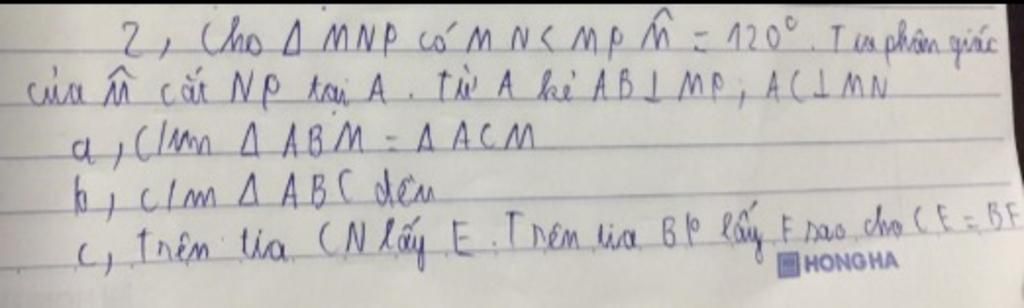 2, Cho Δ MNP có MN < MP M̂ = 120°. Tia phân giác
của M̂ cắt NP tại A. Từ A kẻ AB ⊥ MP; AC ⊥ MN
a, C/m Δ ABM = Δ ACM
b, c/m Δ ABC đều
c, Trên tia CN lấy E. Trên tia BP lấy F sao cho CE = BF
HONG HA